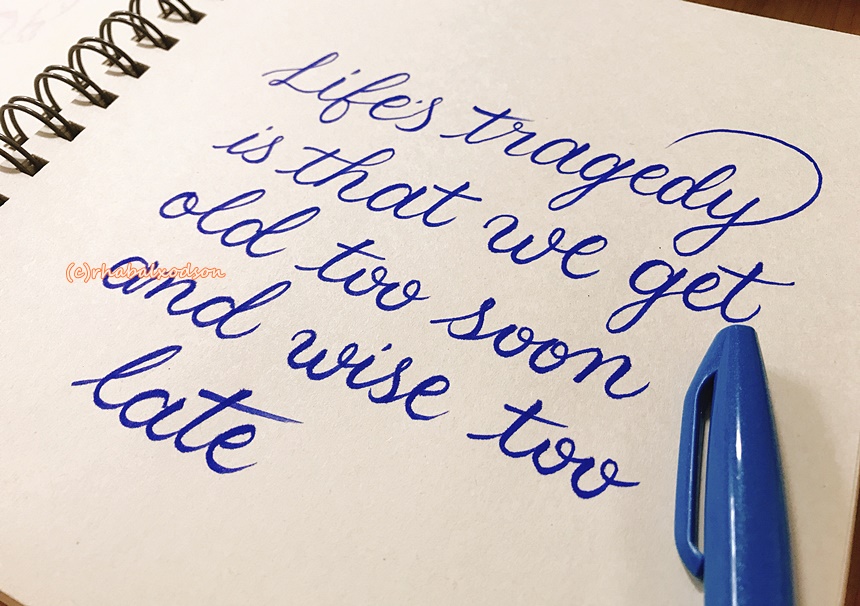 Life's tragedy
is that we get
old too soon
(c)rhabalxodson
and wise too
late